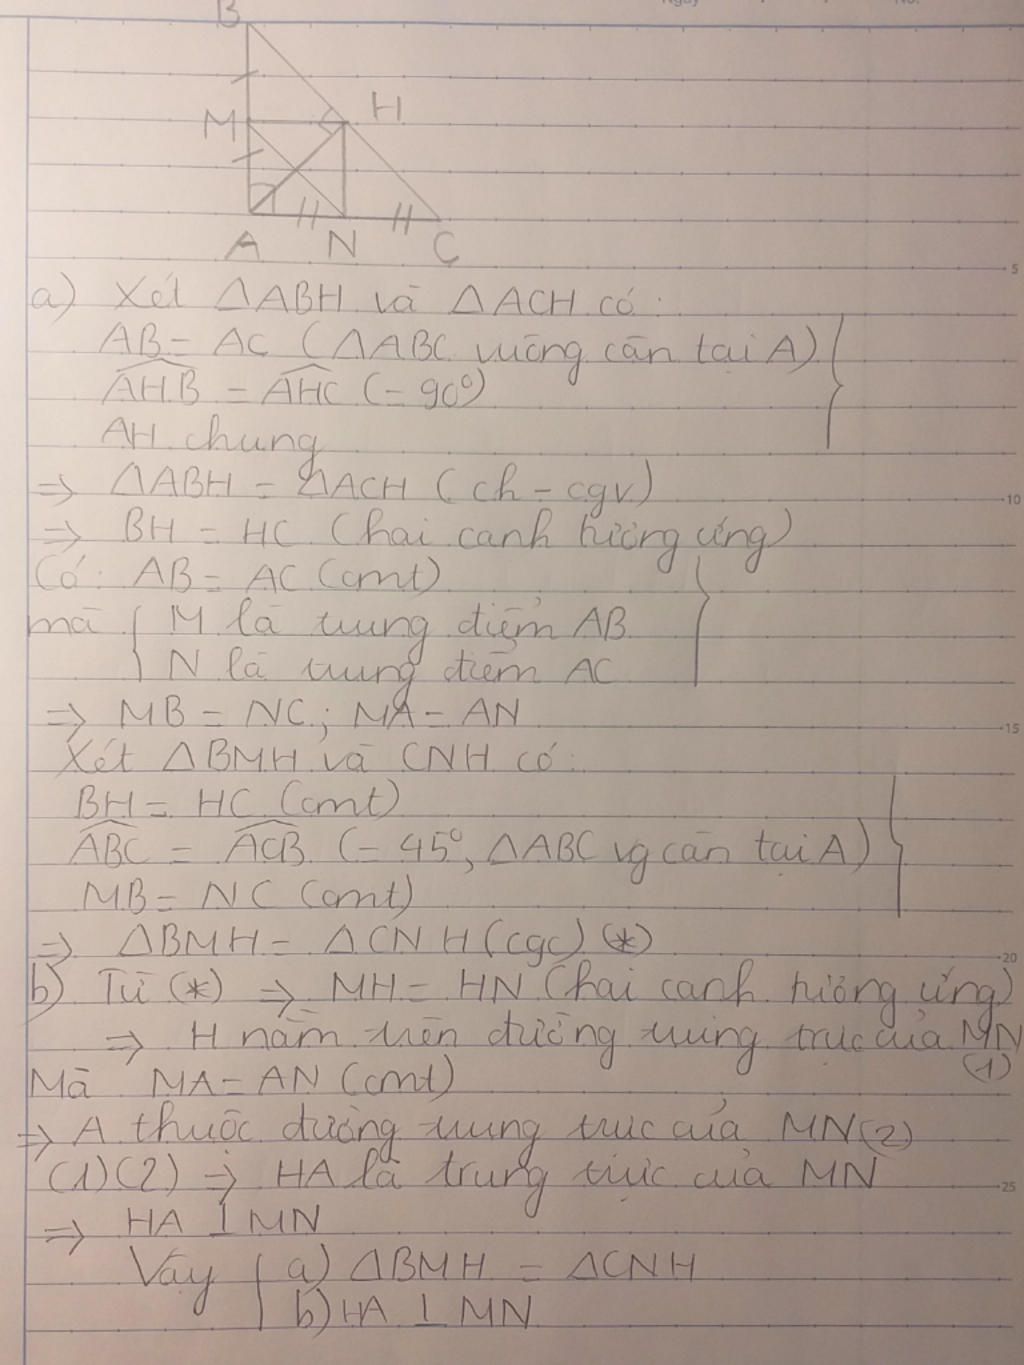 Ngày
No.
B
M
H
A N C
a) Xét △ABH và △ACH có:
AB = AC (△ABC vuông cân tại A)
AHB = AHC (= 90°)
AH chung
=> △ABH = △ACH (ch - cgv)
=> BH = HC (hai cạnh tương ứng)
Có: AB = AC (cmt)
mà { M là trung điểm AB
N là trung điểm AC
=> MB = NC; MA = AN
Xét △BMH và CNH có:
BH = HC (cmt)
ABC = ACB (= 45°, △ABC vg cân tại A)
MB = NC (cmt)
=> △BMH = △CNH (cgc) (*)
b) Từ (*) => MH = HN (hai cạnh tương ứng)
=> H nằm trên đường trung trực của MN
(1)
Mà MA = AN (cmt)
=> A thuộc đường trung trực của MN (2)
(1)(2) => HA là trung trực của MN
=> HA ⊥ MN
Vậy { a) △BMH = △CNH
b) HA ⊥ MN
5
10
15
20
25